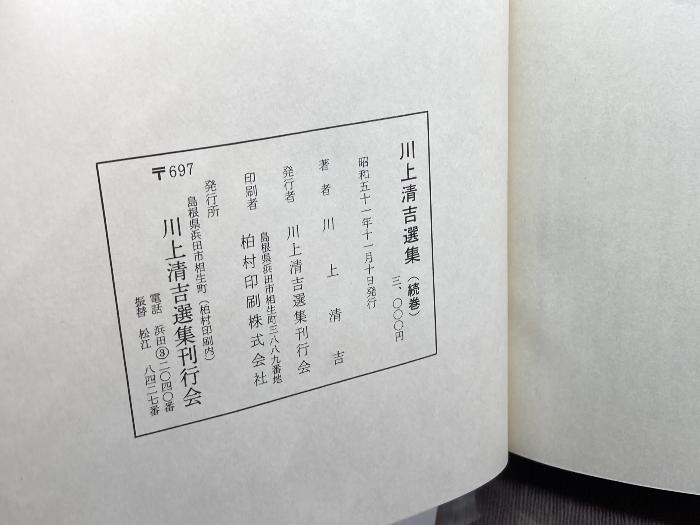 川上清吉選集（続巻）
三、〇〇〇円
昭和五十一年十一月十日発行
著者 川上清吉
発行者 川上清吉選集刊行会
島根県浜田市相生町三八八九番地
印刷者 柏村印刷株式会社
発行所
島根県浜田市相生町（柏村印刷内）
川上清吉選集刊行会
電話 浜田③二〇四〇番
振替 松江 八四二七番
〒697